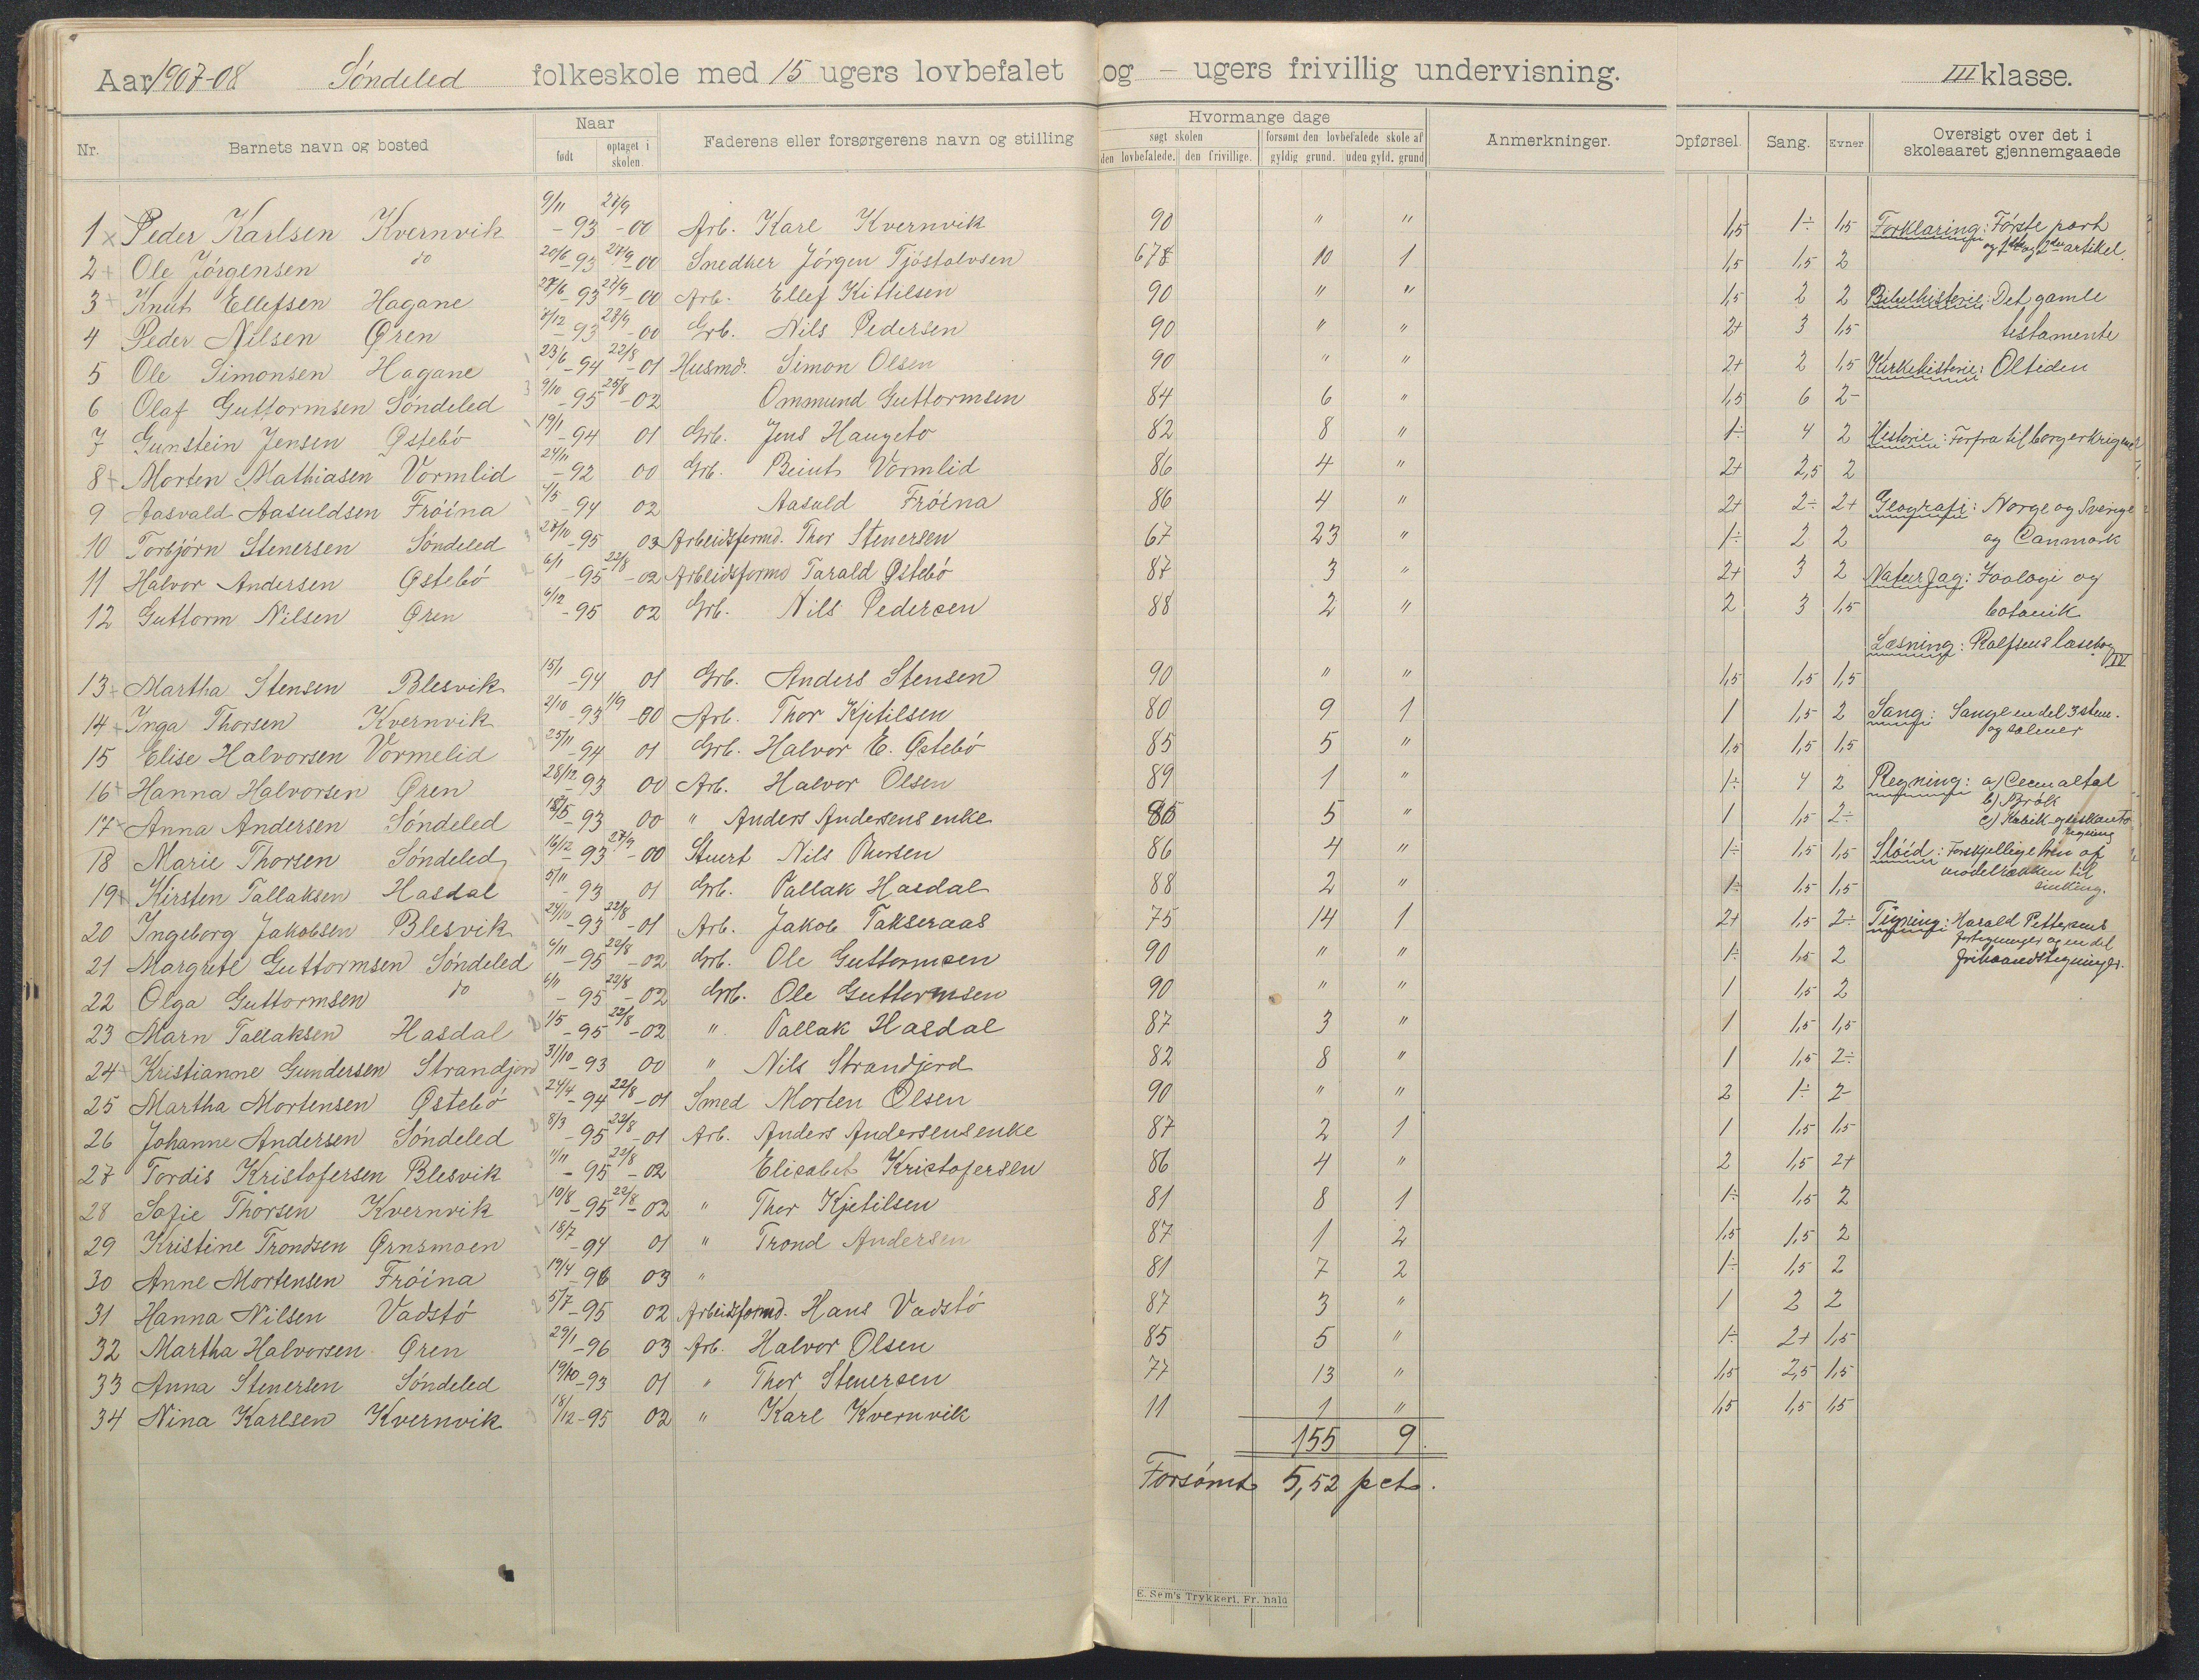 Aar 1907-08 Søndeled folkeskole med 15 ugers lovbefalet og – ugers frivillig undervisning. III klasse.
Nr. Barnets navn og bosted Naar født optaget i skolen. Faderens eller forsørgerens navn og stilling Hvormange dage søgt skolen den lovbefalede. den frivillige. forsømt den lovbefalede skole af gyldig grund. uden gyld. grund Anmerkninger. Opførsel. Sang. Evner Oversigt over det i skoleaaret gjennemgaaede
1 x Peder Karlsen Kvernvik 9/11 -93 27/9 -00 Arb. Karl Kvernvik 90 " " 1,5 1÷ 1,5 Forklaring: Første part
2 + Ole Jørgensen do 20/6 -93 27/9 -00 Snedker Jørgen Tjøstolvsen 678 10 1 1,5 1,5 2 og 1ste og 2den artikel.
3 + Knut Ellefsen Hagane 27/6 -93 27/9 -00 Arb. Ellef Kittilsen 90 " " 1,5 2 2 Bibelhistorie: Det gamle
4 Peder Nilsen Øren 7/12 -93 27/9 -00 Grb. Nils Pedersen 90 " " 2+ 3 1,5 testamente
5 Ole Simonsen Hagane 23/6 -94 22/8 -01 Husmd. Simon Olsen 90 " " 2+ 2 1,5 Kirkehistorie: Oltiden
6 Olaf Guttormsen Søndeled 9/10 -95 25/8 -02 Ommund Guttormsen 84 6 " 1,5 6 2-
7 Gunstein Jensen Østebø 19/1 -94 01 Grb. Jens Haugeto 82 8 " 1÷ 4 2 Historie: Forfra til borgerkrigene
8 + Morten Mathiasen Vormlid 24/11 -92 00 Grb. Beint Vormlid 86 4 " 2+ 2,5 2
9 Aasvald Aasuldsen Frøina 4/5 -94 02 Aasuld Frøina 86 4 " 2+ 2÷ 2+ Geografi: Norge og Sverige
10 Torbjørn Stenersen Søndeled 27/10 -95 03 Arbeidsformd. Thor Stenersen 67 23 " 1÷ 2 2 og Danmark
11 Halvor Andersen Østebø 6/1 -95 22/8 -02 Arbeidsformd Tarald Østebø 87 3 " 2+ 3 2 Naturfag: Zoologi og
12 Guttorm Nilsen Øren 6/12 -95 02 Grb. Nils Pedersen 88 2 " 2 3 1,5 botanik
Læsning: Rolfsens læsebog IV
13 + Martha Stensen Blesvik 15/1 -94 01 Grb. Anders Stensen 90 " " 1,5 1,5 1,5
14 + Inga Thorsen Kvernvik 2/10 -93 1/9 -00 Arb. Thor Kjetilsen 80 9 1 1 1,5 2 Sang: Sangl endel 3 stem.
15 Elise Halvorsen Vormelid 25/11 -94 01 Grb. Halvor E. Østebø 85 5 " 1,5 1,5 1,5 og salmer
16 + Hanna Halvorsen Øren 28/12 -93 00 Arb. Halvor Olsen 89 1 " 1÷ 4 2 Regning: a) Decimaltal
17 Anna Andersen Søndeled 18/5 -93 00 " Anders Andersens enke 85 5 " 1 1,5 2÷ b) Brøk
18 Marie Thorsen Søndeled 16/12 -93 27/9 -00 Stuert Nils Thorsen 86 4 " 1÷ 1,5 1,5 Sløid: Forskjellige trin af
19 Kirsten Tallaksen Hasdal 5/11 -93 01 Grb. Tallak Hasdal 88 2 " 1÷ 1,5 1,5 modelrækken til sinking.
20 Ingeborg Jakobsen Blesvik 24/10 -93 22/8 -01 Arb. Jakob Takseraas 75 14 1 2+ 1,5 2÷ Tegning: Harald Pettersens
21 Margrete Guttormsen Søndeled 6/11 -95 22/8 -02 Grb. Ole Guttormsen 90 " " 1÷ 1,5 2 fortegninger og en del frihaandstegninger.
22 Olga Guttormsen do 6/11 -95 22/8 -02 Grb. Ole Guttormsen 90 " " 1 1,5 2
23 Marn Tallaksen Hasdal 1/5 -95 22/8 -02 " Tallak Hasdal 87 3 " 1 1,5 1,5
24 Kristianne Gundersen Strandjord 31/10 -93 00 " Nils Strandjord 82 8 " 1 1,5 2÷
25 Martha Mortensen Østebø 24/4 -94 22/8 -01 Smed Morten Olsen 90 " " 2 1÷ 2-
26 Johanne Andersen Søndeled 8/3 -95 22/8 -01 Arb. Anders Andersens enke 87 2 1 1 1,5 1,5
27 Tordis Kristofersen Blesvik 11/11 -95 22/8 -02 Elisabet Kristofersen 86 4 " 2 1,5 2+
28 Sofie Thorsen Kvernvik 10/8 -95 22/8 -02 " Thor Kjetilsen 81 8 1 1÷ 1,5 2
29 Kristine Trondsen Ørnsmoen 18/7 -94 01 " Trond Andersen 87 1 2 1,5 1,5 2
30 Anne Mortensen Frøina 19/4 -96 03 " 81 7 2 1÷ 1,5 2
31 Hanna Nilsen Vadstø 5/7 -95 02 Arbeidsformd. Hans Vadstø 87 3 " 1 2 2
32 Martha Halvorsen Øren 29/1 -96 03 Arb. Halvor Olsen 85 5 " 1÷ 2+ 1,5
33 Anna Stenersen Søndeled 19/10 -93 01 " Thor Stenersen 77 13 " 1,5 2,5 1,5
34 Nina Karlsen Kvernvik 18/12 -95 02 " Karl Kvernvik 11 1 " 1,5 1,5 1,5
155 9.
Forsømt 5,52 pct.
E. Sem's Trykkeri, Fr. hald